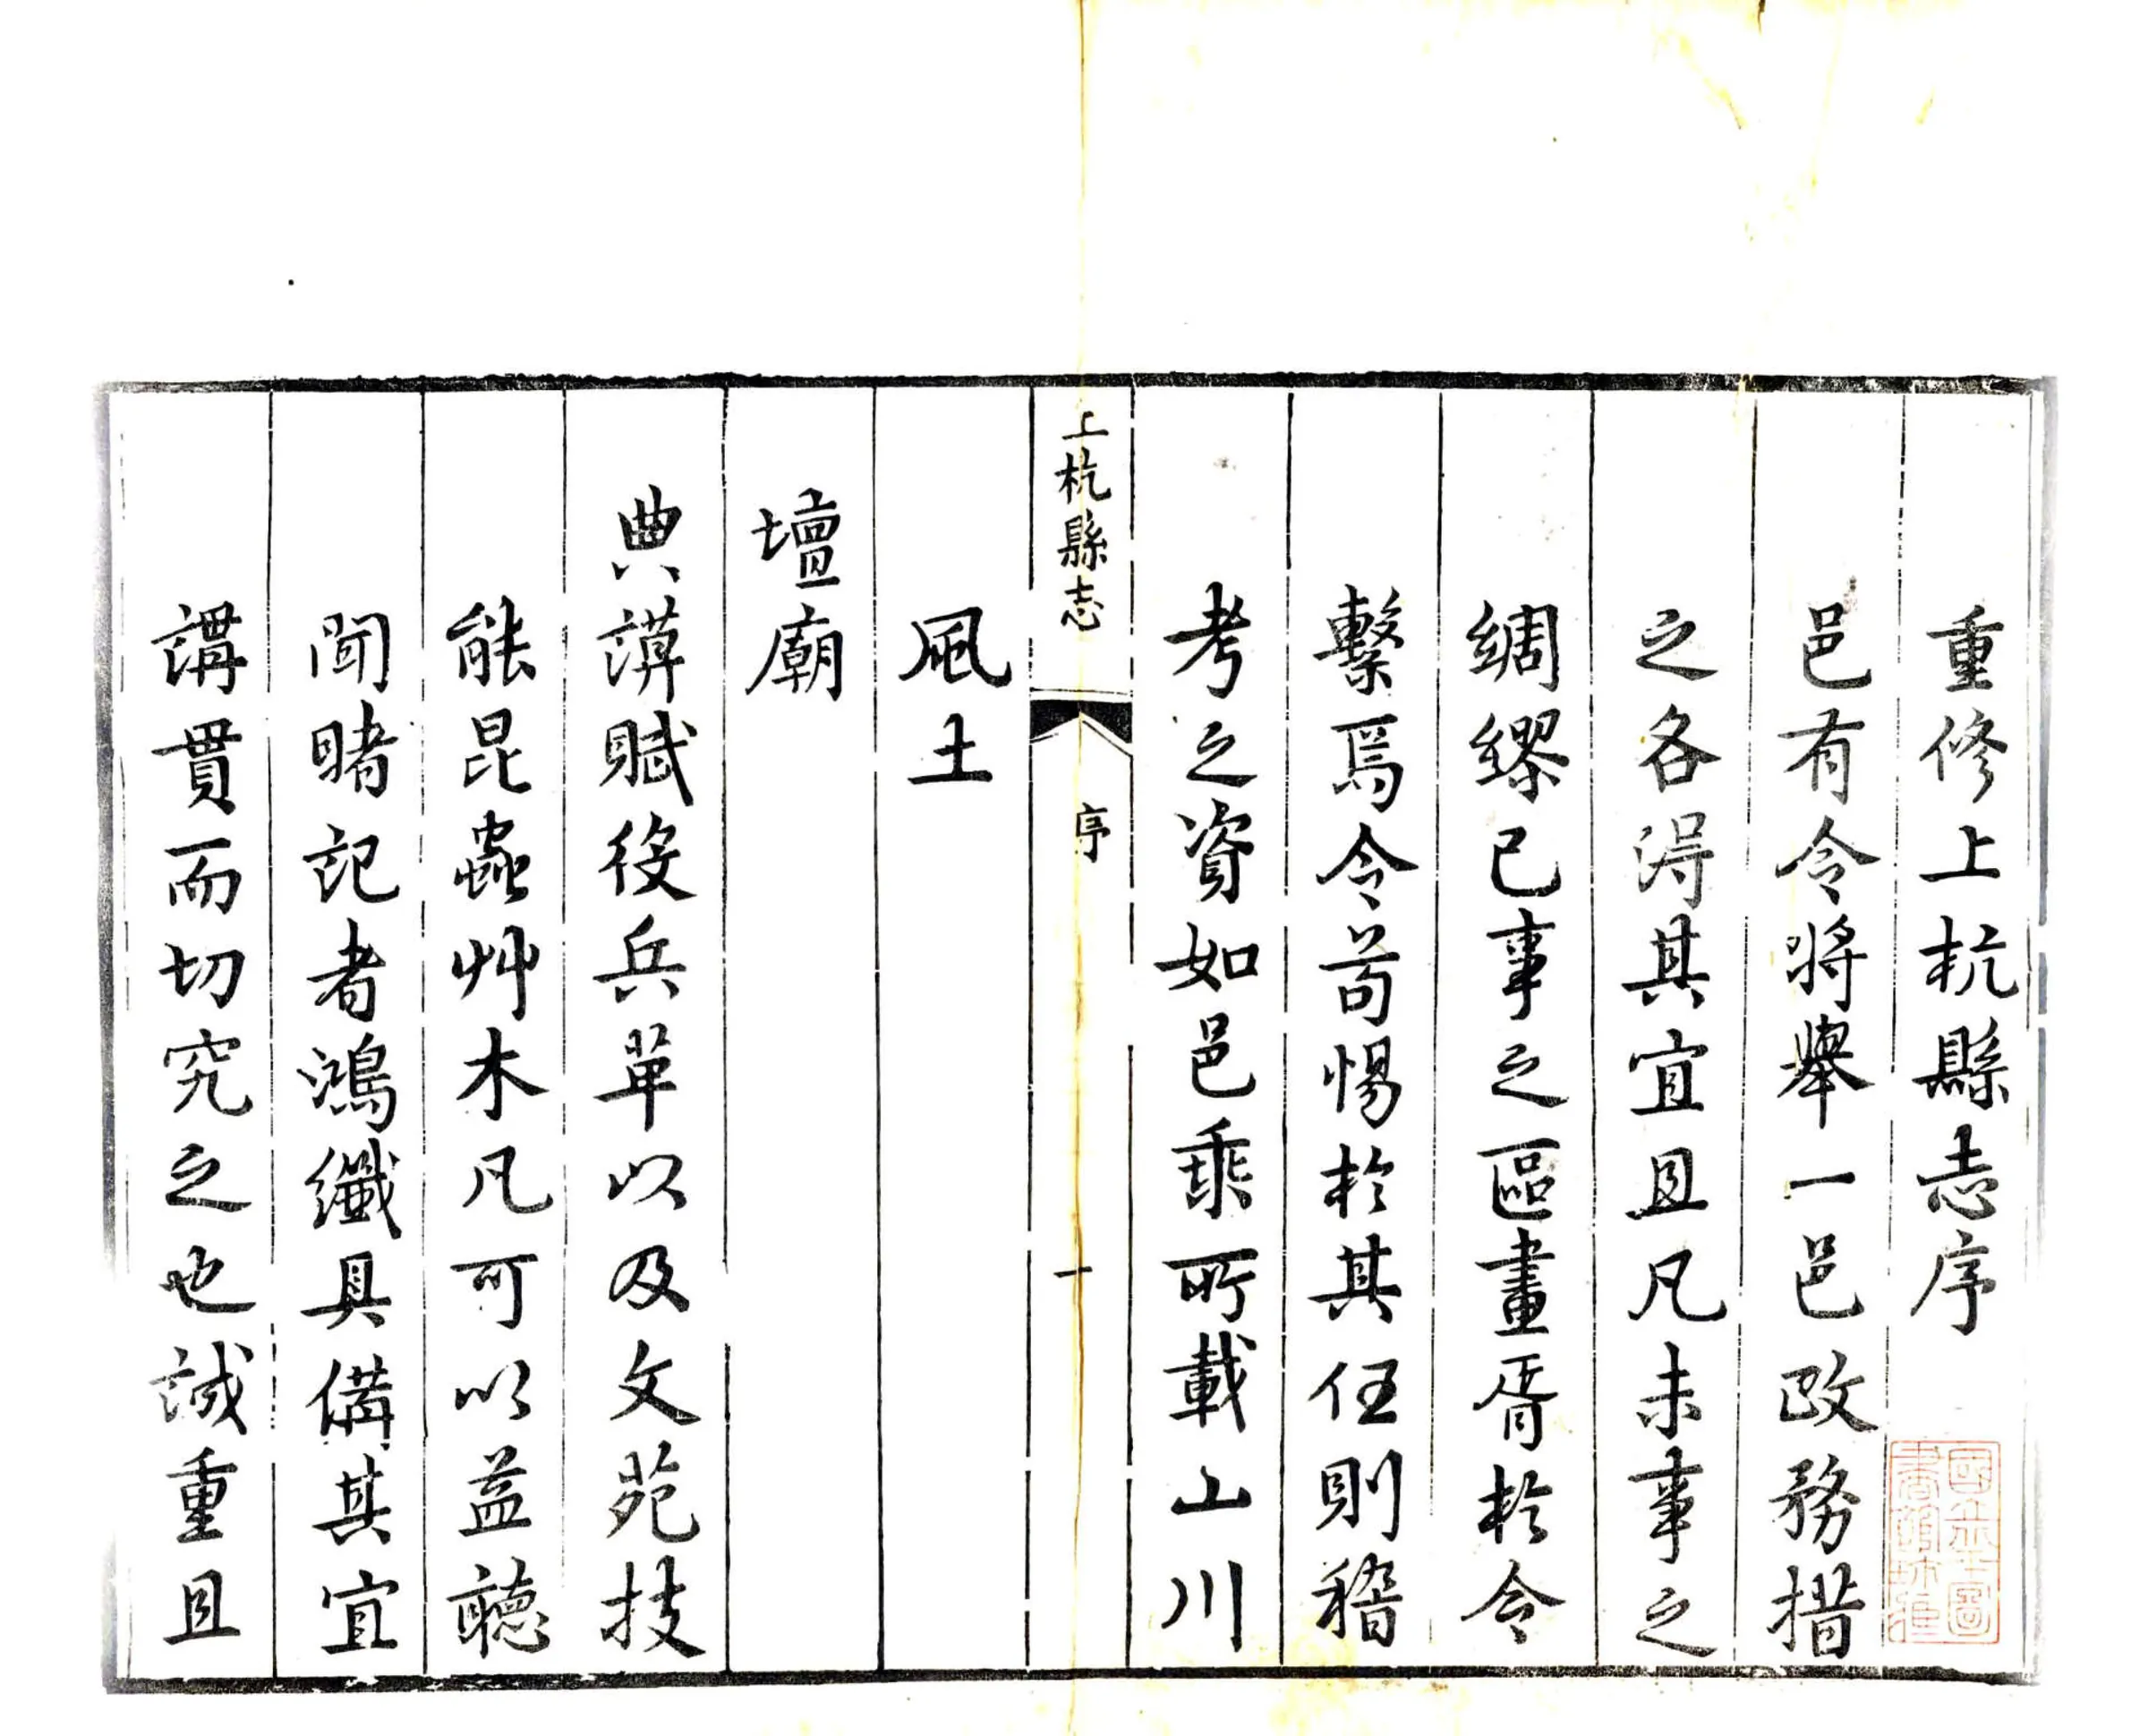 重修上杭縣志序
邑有令將舉一邑政務措
之各得其宜且凡未事之
綢繆已事之區畫胥於令
繫焉令苟惕於其任則稽
考之資如邑乘所載山川
上杭縣志
序
一
風土
壇廟
典謨賦役兵革以及文苑技
能昆蟲艸木凡可以益聽
聞睹記者鴻纖具備其宜
講貫而切究之也誠重且
國立北平圖
書館珍藏